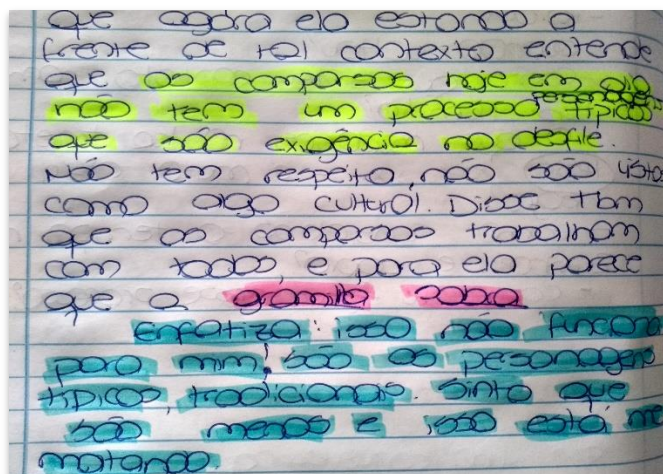 que agora ela estando a
frente de tal contexto entende
que as comparsas hoje em dia
não tem um processo personagens típicos
que são exigência no desfile.
Não tem respeito, não são vistos
como algo cultural. Disse tbm
que as comparsas trabalham
com todos, e para ela parece
que a gramilla sobra
Enfatiza: isso não funciona
para mim! são os pesonagens
típicos, tradicionais. Sinto que
são menos e isso está me
matando